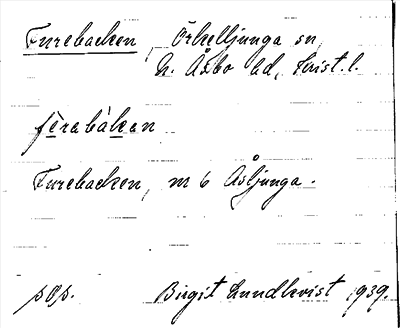 Furebacken, Örkelljunga sn,
N. Åsbo hd, Krist. l.
fèrabàkan
Furebacken, m 6 Åsljunga.
pop. Birgit Lundkvist 1939.